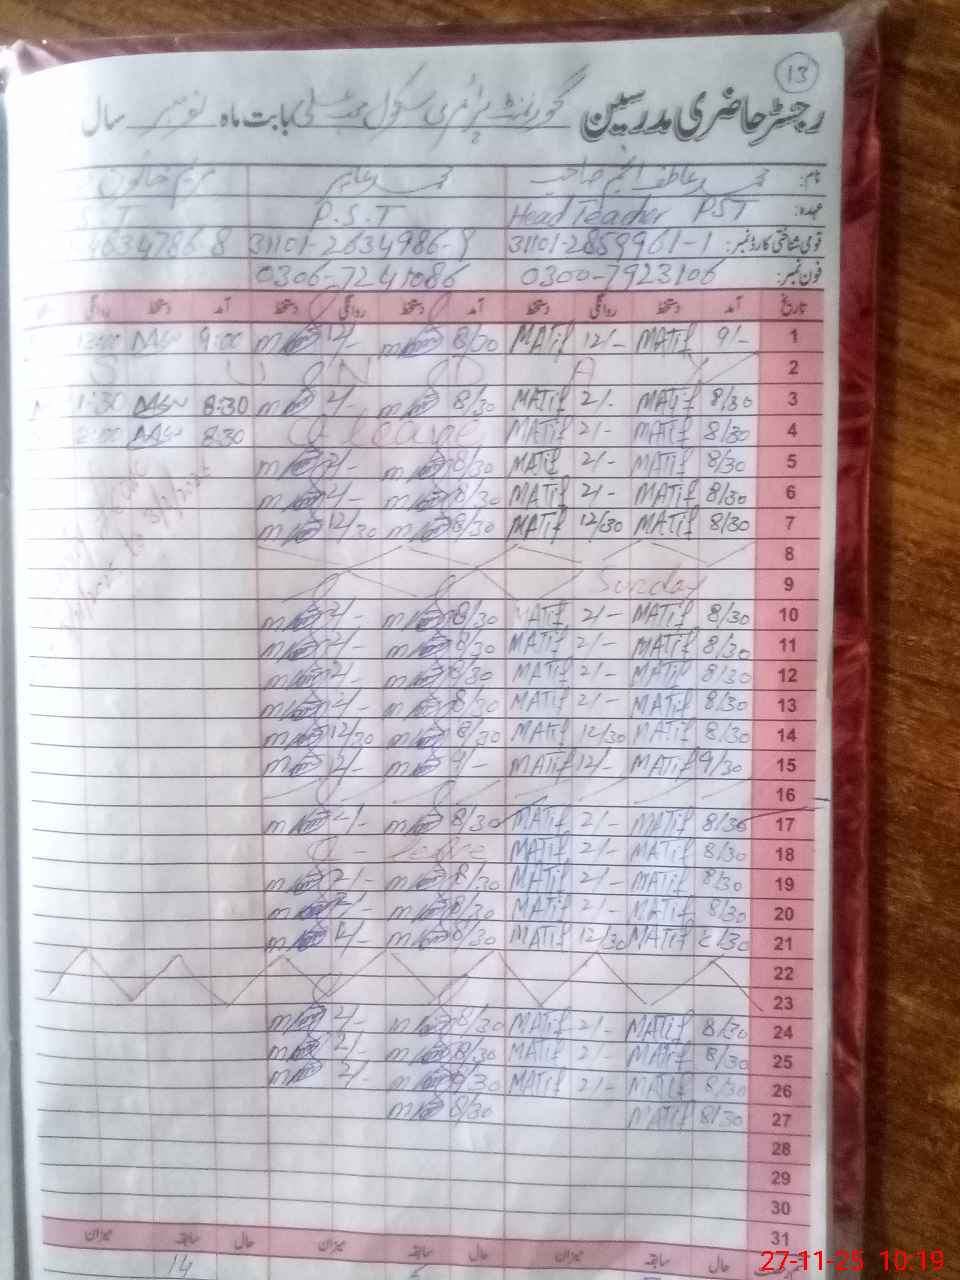 13
رجسٹر حاضری مدرسین گورنمنٹ پرائمری سکول بابت ماہ نومبر سال
نام: محمد عاطف انجم صاحب محمد عابر مریم خاتون
عہدہ: Head Teacher PST P.S.T S.T
قومی شناختی کارڈ نمبر: 31101-2859961-1 31101-2634986-9 4634786-8
فون نمبر: 0300-7923106 0306-7241086
تاریخ آمد دستخط روانگی دستخط آمد دستخط روانگی دستخط آمد دستخط روانگی
1 9/- MATif 12/- MATif 8/30 12/- 9:00 12:00
2 S U N D A Y
3 8/30 MATif 2/- MATif 8/30 2/- 8:30 1:30
4 8/30 MATif 2/- MATif C leave 8:30 2:00
5 8/30 MATif 2/- MATif 8/30 2/-
6 8/30 MATif 2/- MATif 8/30 2/-
7 8/30 MATif 12/30 MATif 8/30 12/30
8
9 Sunday
10 8/30 MATif 2/- MATif 8/30 2/-
11 8/30 MATif 2/- MATif 8/30 2/-
12 8/30 MATif 2/- MATif 8/30 2/-
13 8/30 MATif 2/- MATif 8/30 2/-
14 8/30 MATif 12/30 MATif 8/30 12/30
15 9/30 MATif 12/- MATif 9/- 12/-
16
17 8/30 MATif 2/- MATif 8/30 2/-
18 8/30 MATif 2/- MATif C - leave
19 8/30 MATif 2/- MATif 8/30 2/-
20 8/30 MATif 2/- MATif 8/30 2/-
21 8/30 MATif 12/30 MATif 8/30
22
23
24 8/30 MATif 2/- MATif 8/30 2/-
25 8/30 MATif 2/- MATif 8/30 2/-
26 8/30 MATif 2/- MATif 8/30 2/-
27 8/30 MATif 8/30
28
29
30
31
حال سابقہ میزان حال سابقہ میزان حال سابقہ میزان
14
27-11-25 10:19